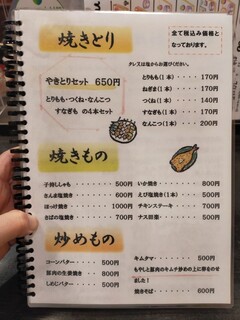 焼きとり
全て税込み価格と
なっております。
タレ又は塩からお選びください。
やきとりセット 650円
とりもも・つくね・なんこつ
すなぎも の4本セット
とりもも(1本)・・・・170円
ねぎま(1本)・・・・170円
つくね(1本)・・・・140円
すなぎも(1本)・・・170円
なんこつ・・・・・200円
焼きもの
子持ししゃも・・・・・500円
さんま塩焼き・・・・・600円
ほっけ焼き・・・・・1000円
さばの塩焼き・・・・・700円
いか焼き・・・・・・800円
えび塩焼き(1本)・・・500円
チキンステーキ・・・・700円
ナス田楽・・・・・・500円
炒めもの
コーンバター・・・・500円
豚肉の生姜焼き・・・・800円
しめじバター・・・・500円
キムタマ・・・・・・500円
もやしと豚肉のキムチ炒めの上に卵をのせ
ました!
焼きそば・・・・・600円